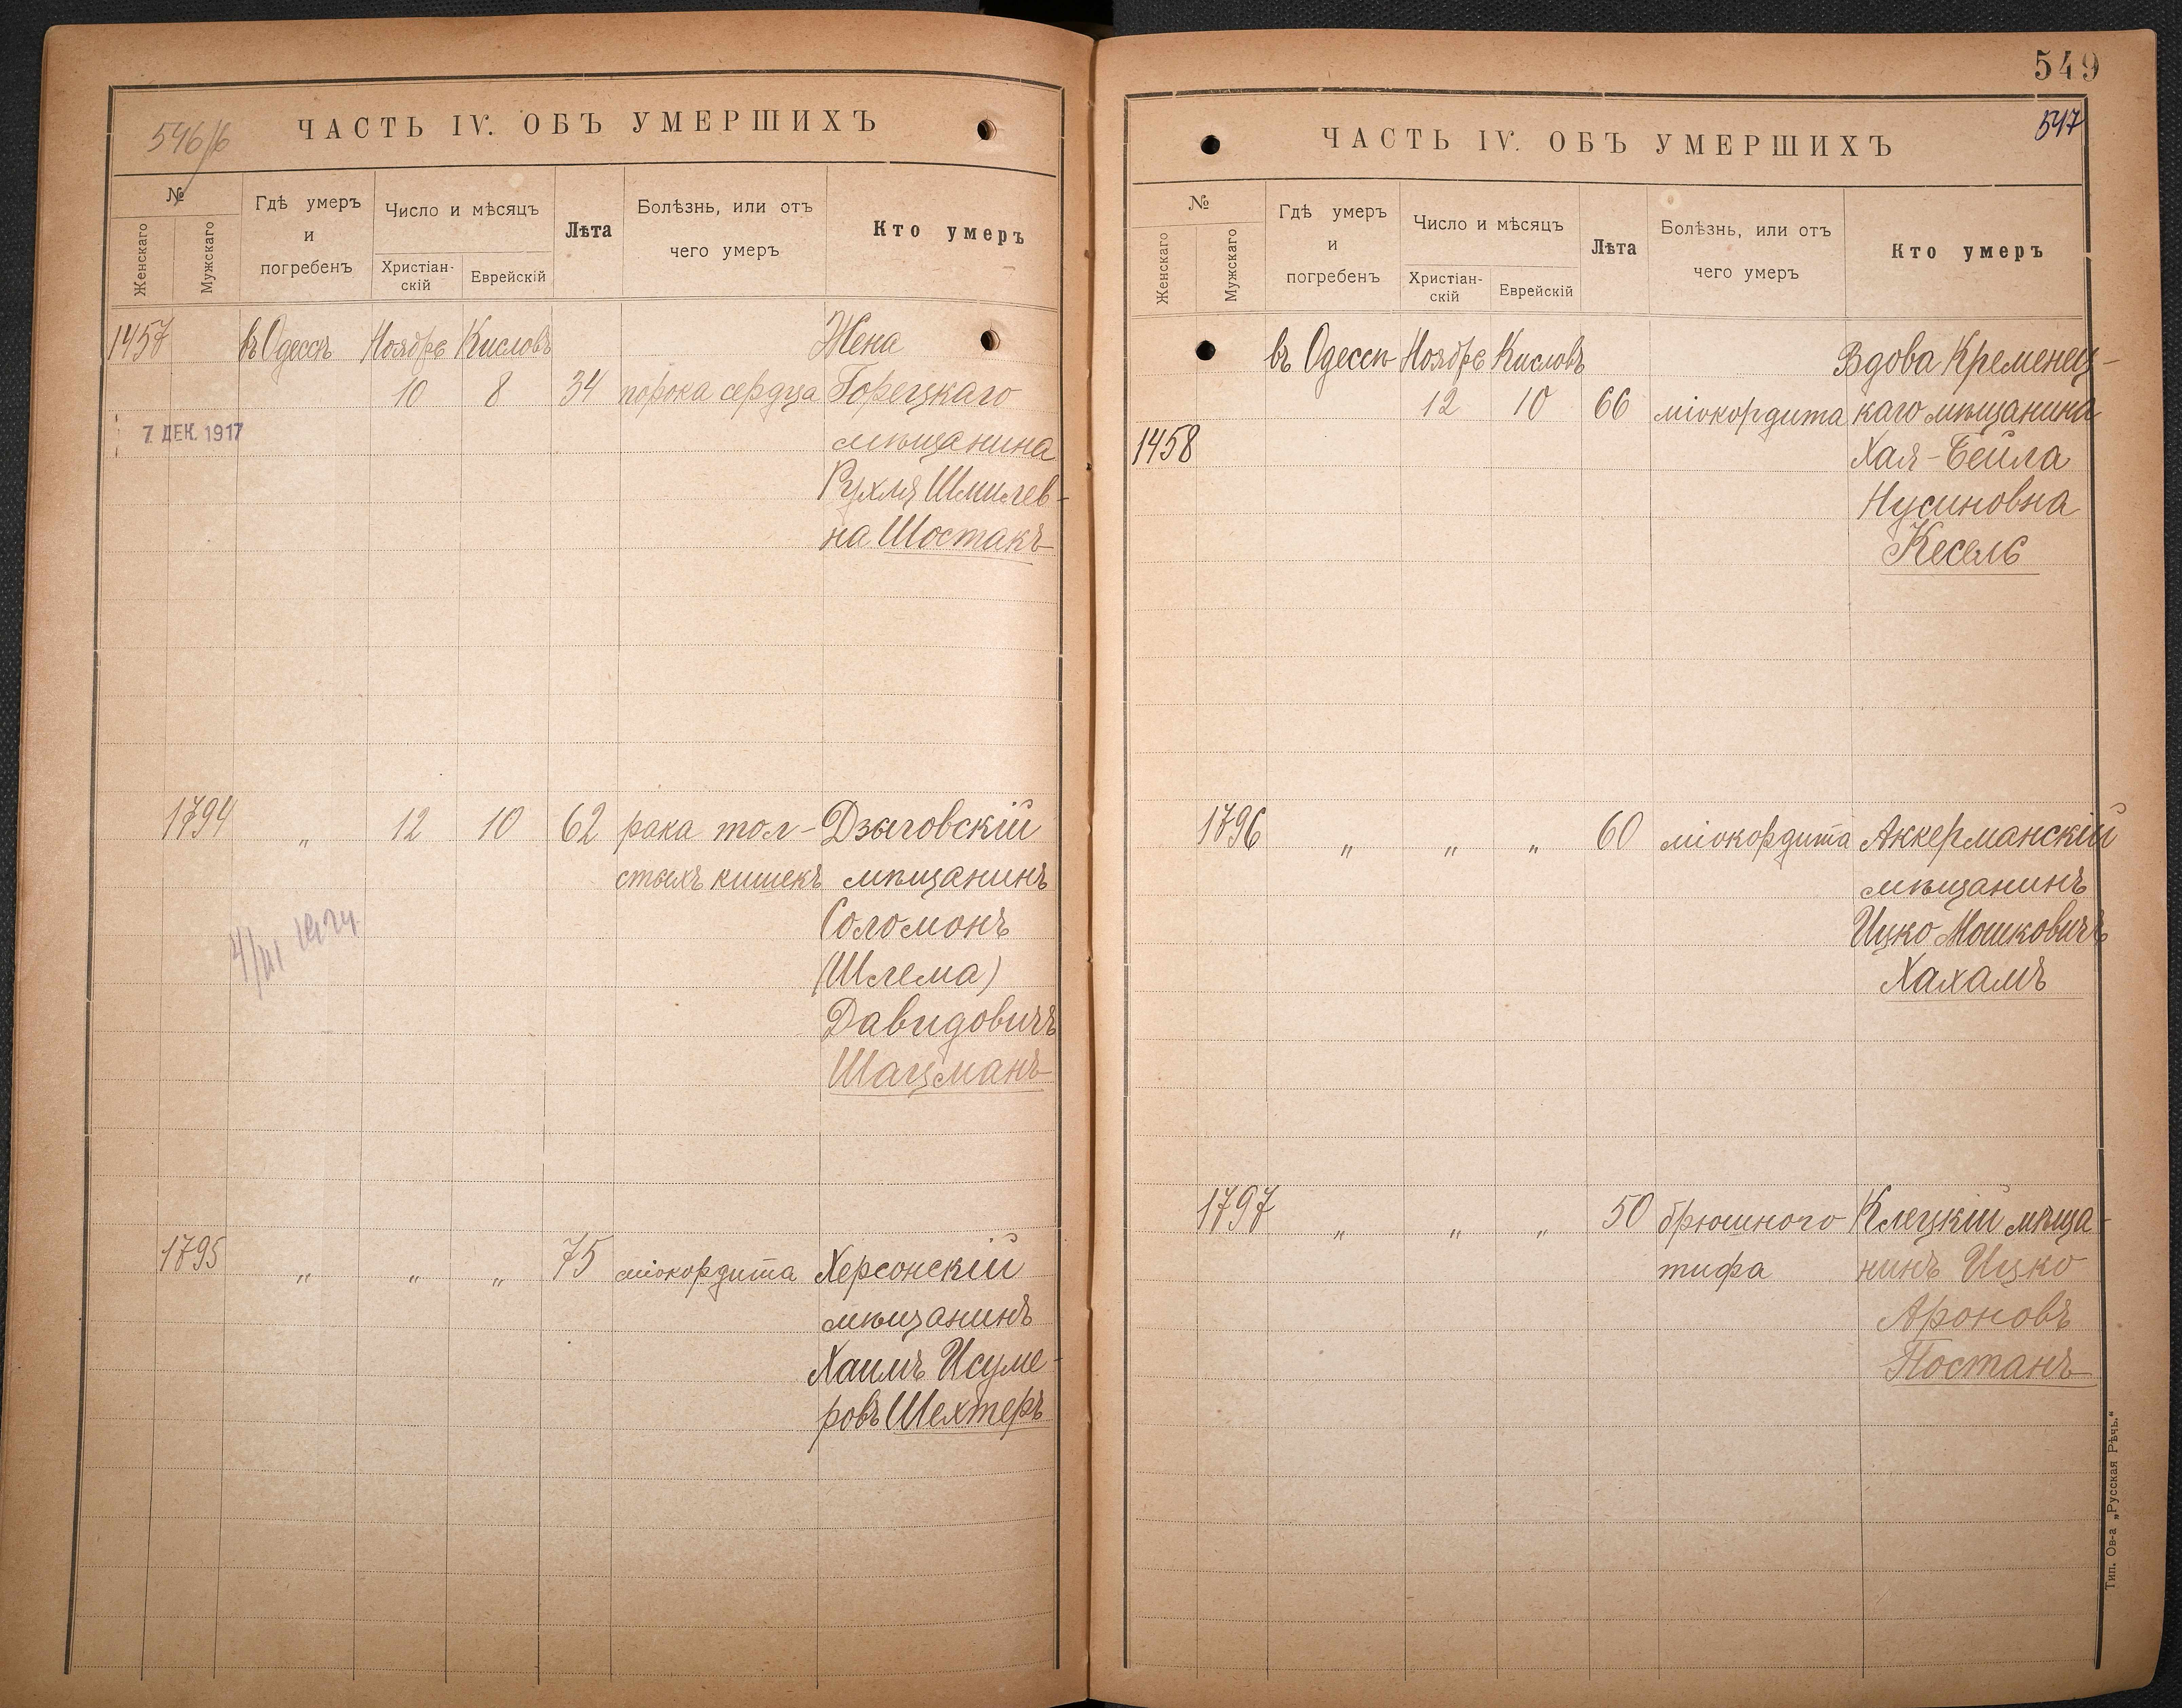 546/6
ЧАСТЬ IV. ОБЪ УМЕРШИХЪ
№
Женскаго
Мужскаго
Гдѣ умеръ
и
погребенъ
Число и мѣсяцъ
Христіан-
скій
Еврейскій
Лѣта
Болѣзнь, или отъ
чего умеръ
Кто умеръ
1457 въ Одессѣ Ноябрь Кисловъ Жена
10 8 34 порока сердца Горецкаго
7 ДЕК. 1917 мѣщанина
Рухля Шмилев-
на Шостакъ
1794 " 12 10 62 рака тол- Дзыговскій
стыхъ кишекъ мѣщанинъ
Соломонъ
(Шлема)
Давидовичъ
Шацманъ
1795 " " " 75 міокордита Херсонскій
мѣщанинъ
Хаимъ Исуме-
ровъ Шехтеръ
549
547
ЧАСТЬ IV. ОБЪ УМЕРШИХЪ
№
Женскаго
Мужскаго
Гдѣ умеръ
и
погребенъ
Число и мѣсяцъ
Христіан-
скій
Еврейскій
Лѣта
Болѣзнь, или отъ
чего умеръ
Кто умеръ
въ Одессѣ Ноябрь Кисловъ Вдова Кременец-
12 10 66 міокордита каго мѣщанина
1458 Хая-Бейла
Нусиновна
Кесель
1796 " " " 60 міокордита Аккерманскій
мѣщанинъ
Ицко Мошковичъ
Хахамъ
1797 " " " 50 брюшного Клецкій мѣща-
тифа нинъ Ицко
Ароновъ
Постанъ
Тип. Ов-а „Русская Рѣчь."